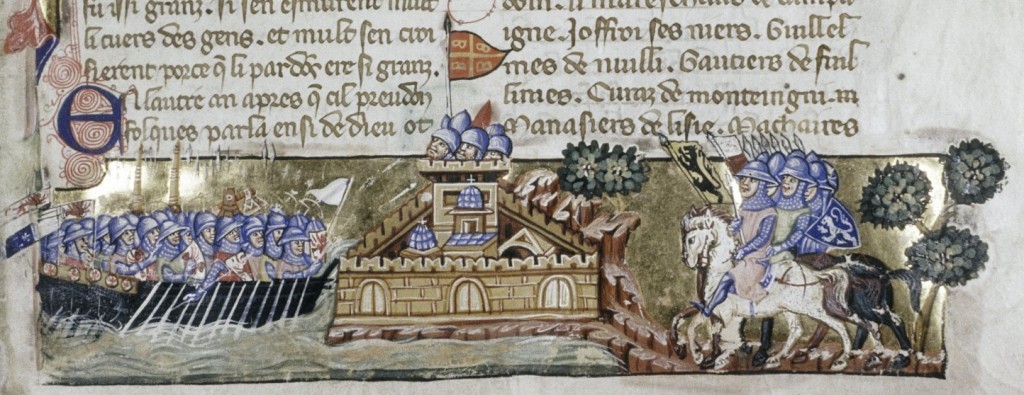 fu issi granz. si sen esmurent mult
li cuers des gens. et mult sen croi
sierent porce q̃ li pardõs ere si granz.
En lautre an apres q̃ cil preudon
folques parla ensi de dieu ot
doin. li mareschaus de campa
igne. Joffroi ses niers. Guillel
mes de nuilli. Gautiers de fuil
limes. Euraz de monteingni.
Manasiers de lisle. Machaires